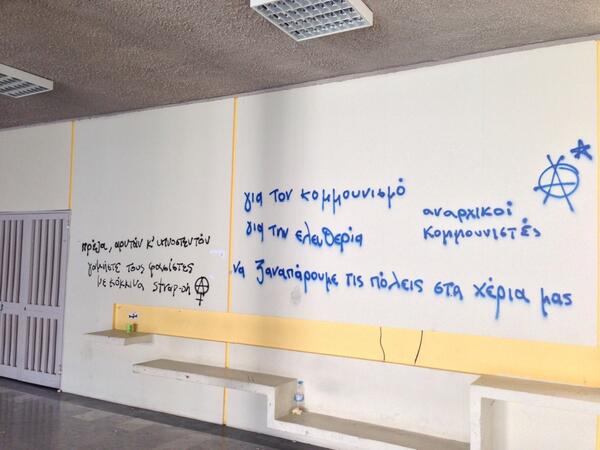 για τον κομμουνισμό
για την ελευθερία
να ξαναπάρουμε τις πόλεις στα χέρια μας
αναρχικοί
κομμουνιστές
γαμήστε τους φασίστες
με κόκκινα strap-on